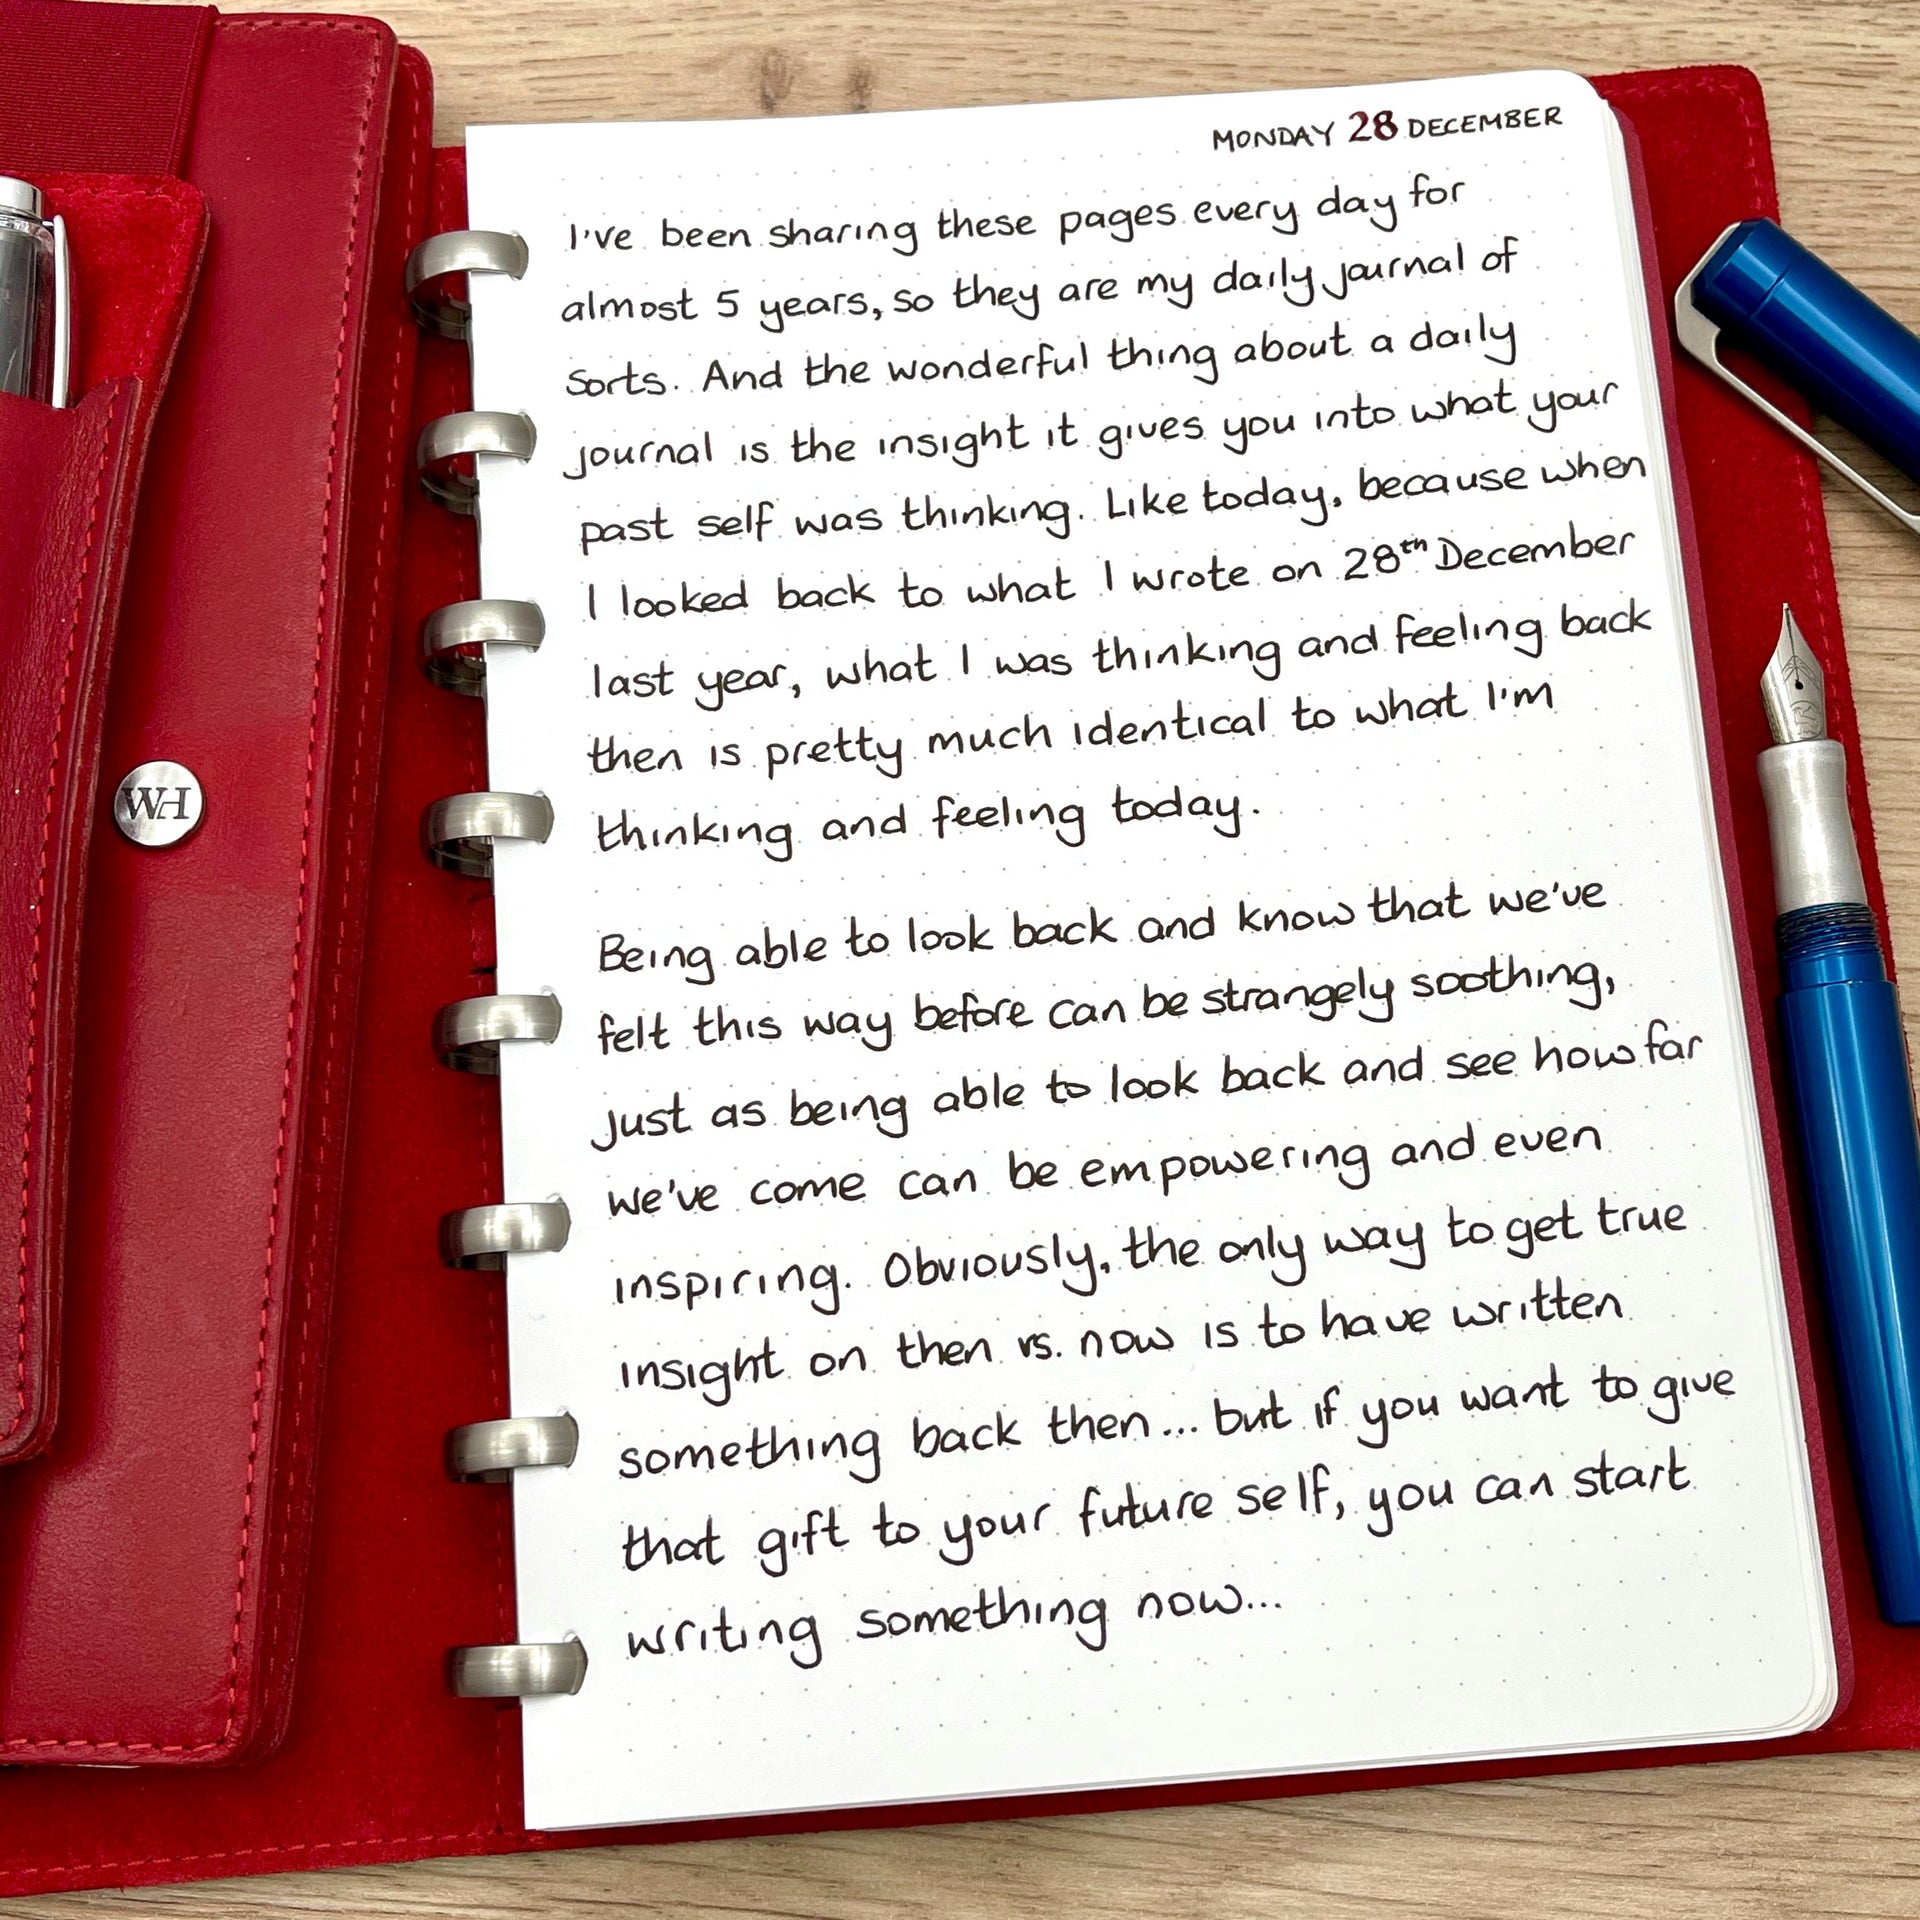 MONDAY 28 DECEMBER
I've been sharing these pages every day for
almost 5 years, so they are my daily journal of
sorts. And the wonderful thing about a daily
journal is the insight it gives you into what your
past self was thinking. Like today, because when
I looked back to what I wrote on 28th December
last year, what I was thinking and feeling back
then is pretty much identical to what I'm
thinking and feeling today.
Being able to look back and know that we've
felt this way before can be strangely soothing,
just as being able to look back and see how far
we've come can be empowering and even
inspiring. Obviously, the only way to get true
insight on then vs. now is to have written
something back then... but if you want to give
that gift to your future self, you can start
writing something now...
WH